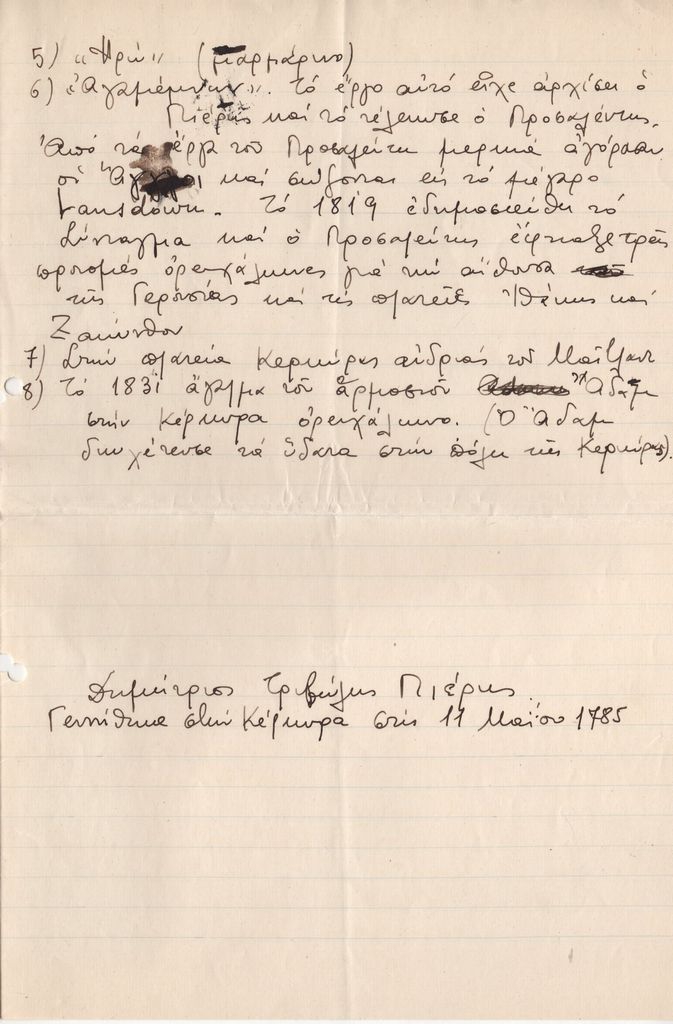 5) «Ηρώ» (μαρμάρινο)
6) «Αγαμέμνων». Τό έργο αυτό είχε αρχίσει ο
Πιέρης καί τό τέλειωσε ο Προσαλέντης.
Από τά έργα του Προσαλέντη μερικά αγόρασαν
οι Άγγλοι καί σώζονται εις τό μέγαρο
Lansdown. Τό 1819 εδημοσιεύθη τό
Σύνταγμα καί ο Προσαλέντης έφτιαξε τρεις
προτομές ορειχάλκινες γιά τήν αίθουσα
της Γερουσίας καί τις πλατείες Ιθάκης καί
Ζακύνθου
7) Στήν πλατεία Κερκύρας ανδριάς του Μαίτλαντ
8) Τό 1831 άγαλμα του αρμοστού Άδαμ
στήν Κέρκυρα ορειχάλκινο. (Ο Άδαμ
διοχέτευσε τά ύδατα στήν πόλη της Κερκύρας).
Δημήτριος Τριβώλης Πιέρης
Γεννήθηκε στήν Κέρκυρα στις 11 Μαΐου 1785